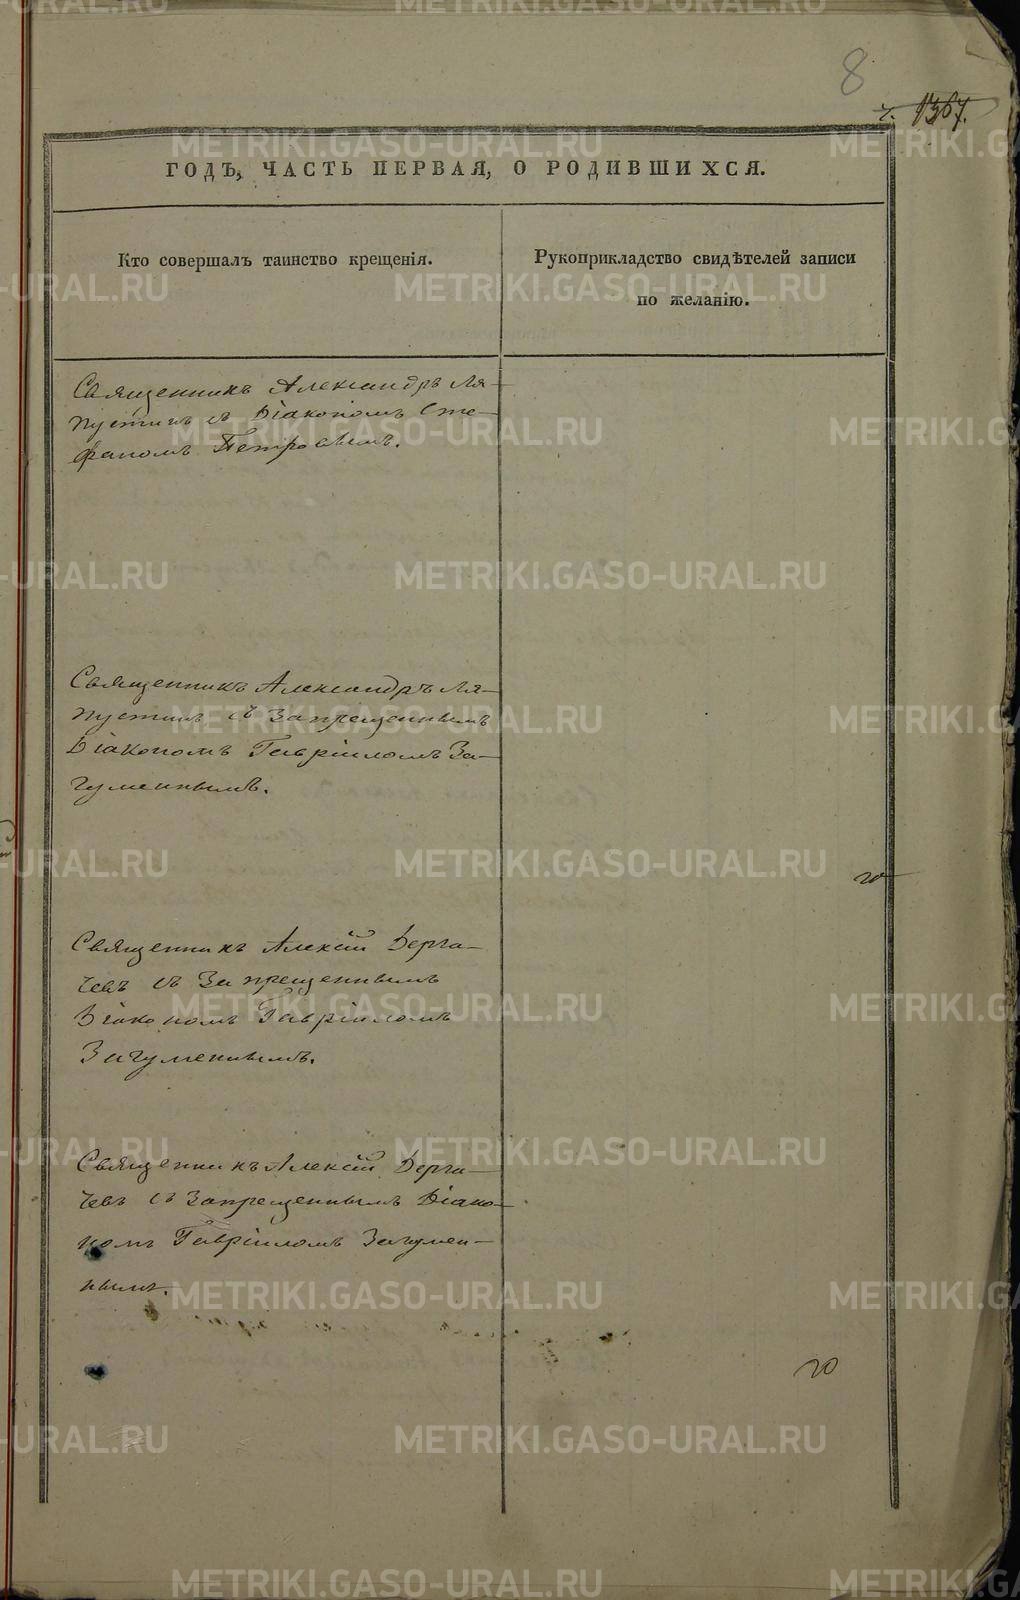 8
1367.
ГОДЪ, ЧАСТЬ ПЕРВАЯ, О РОДИВШИХСЯ.
Кто совершалъ таинство крещенія.
Рукоприкладство свидѣтелей записи
по желанію.
Священникъ Александръ Ля-
пустинъ съ Діакономъ Сте-
фаномъ Петровымъ.
Священникъ Александръ Ля-
пустинъ съ Запрещеннымъ
Діакономъ Гавріиломъ За-
гуменнымъ.
Священникъ Алексій Дерга-
чевъ съ Запрещеннымъ
Діакономъ Гавріиломъ
Загуменнымъ.
Священникъ Алексій Дерга-
чевъ съ Запрещеннымъ Діако-
номъ Гавріиломъ Загумен-
нымъ.
METRIKI.GASO-URAL.RU